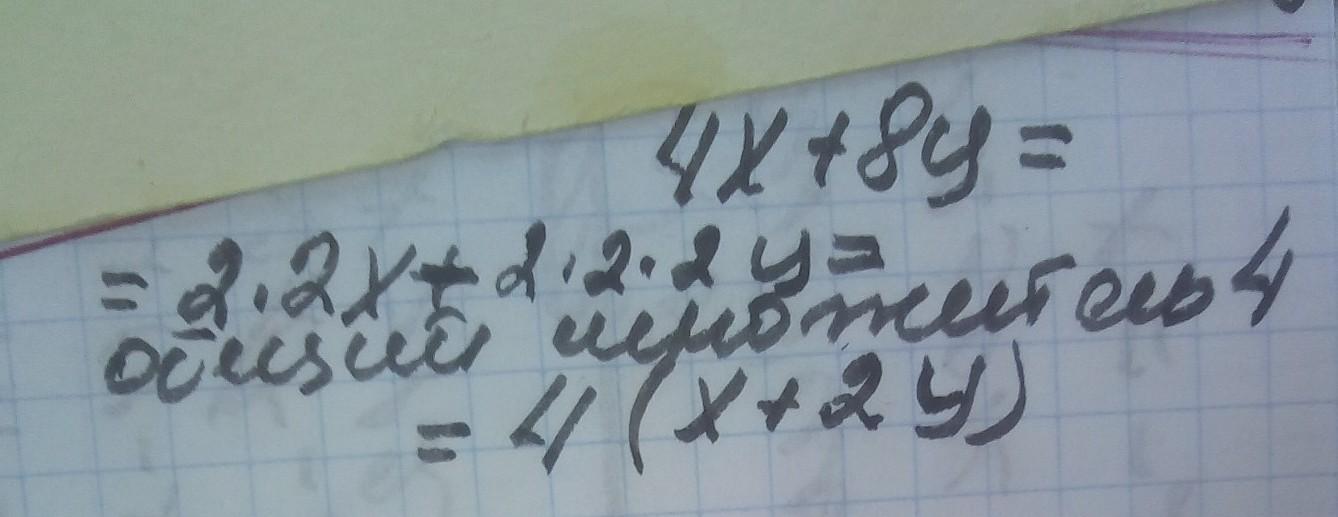 4x+8y=
=2·2x+2·2·2y=
общий множитель 4
=4(x+2y)